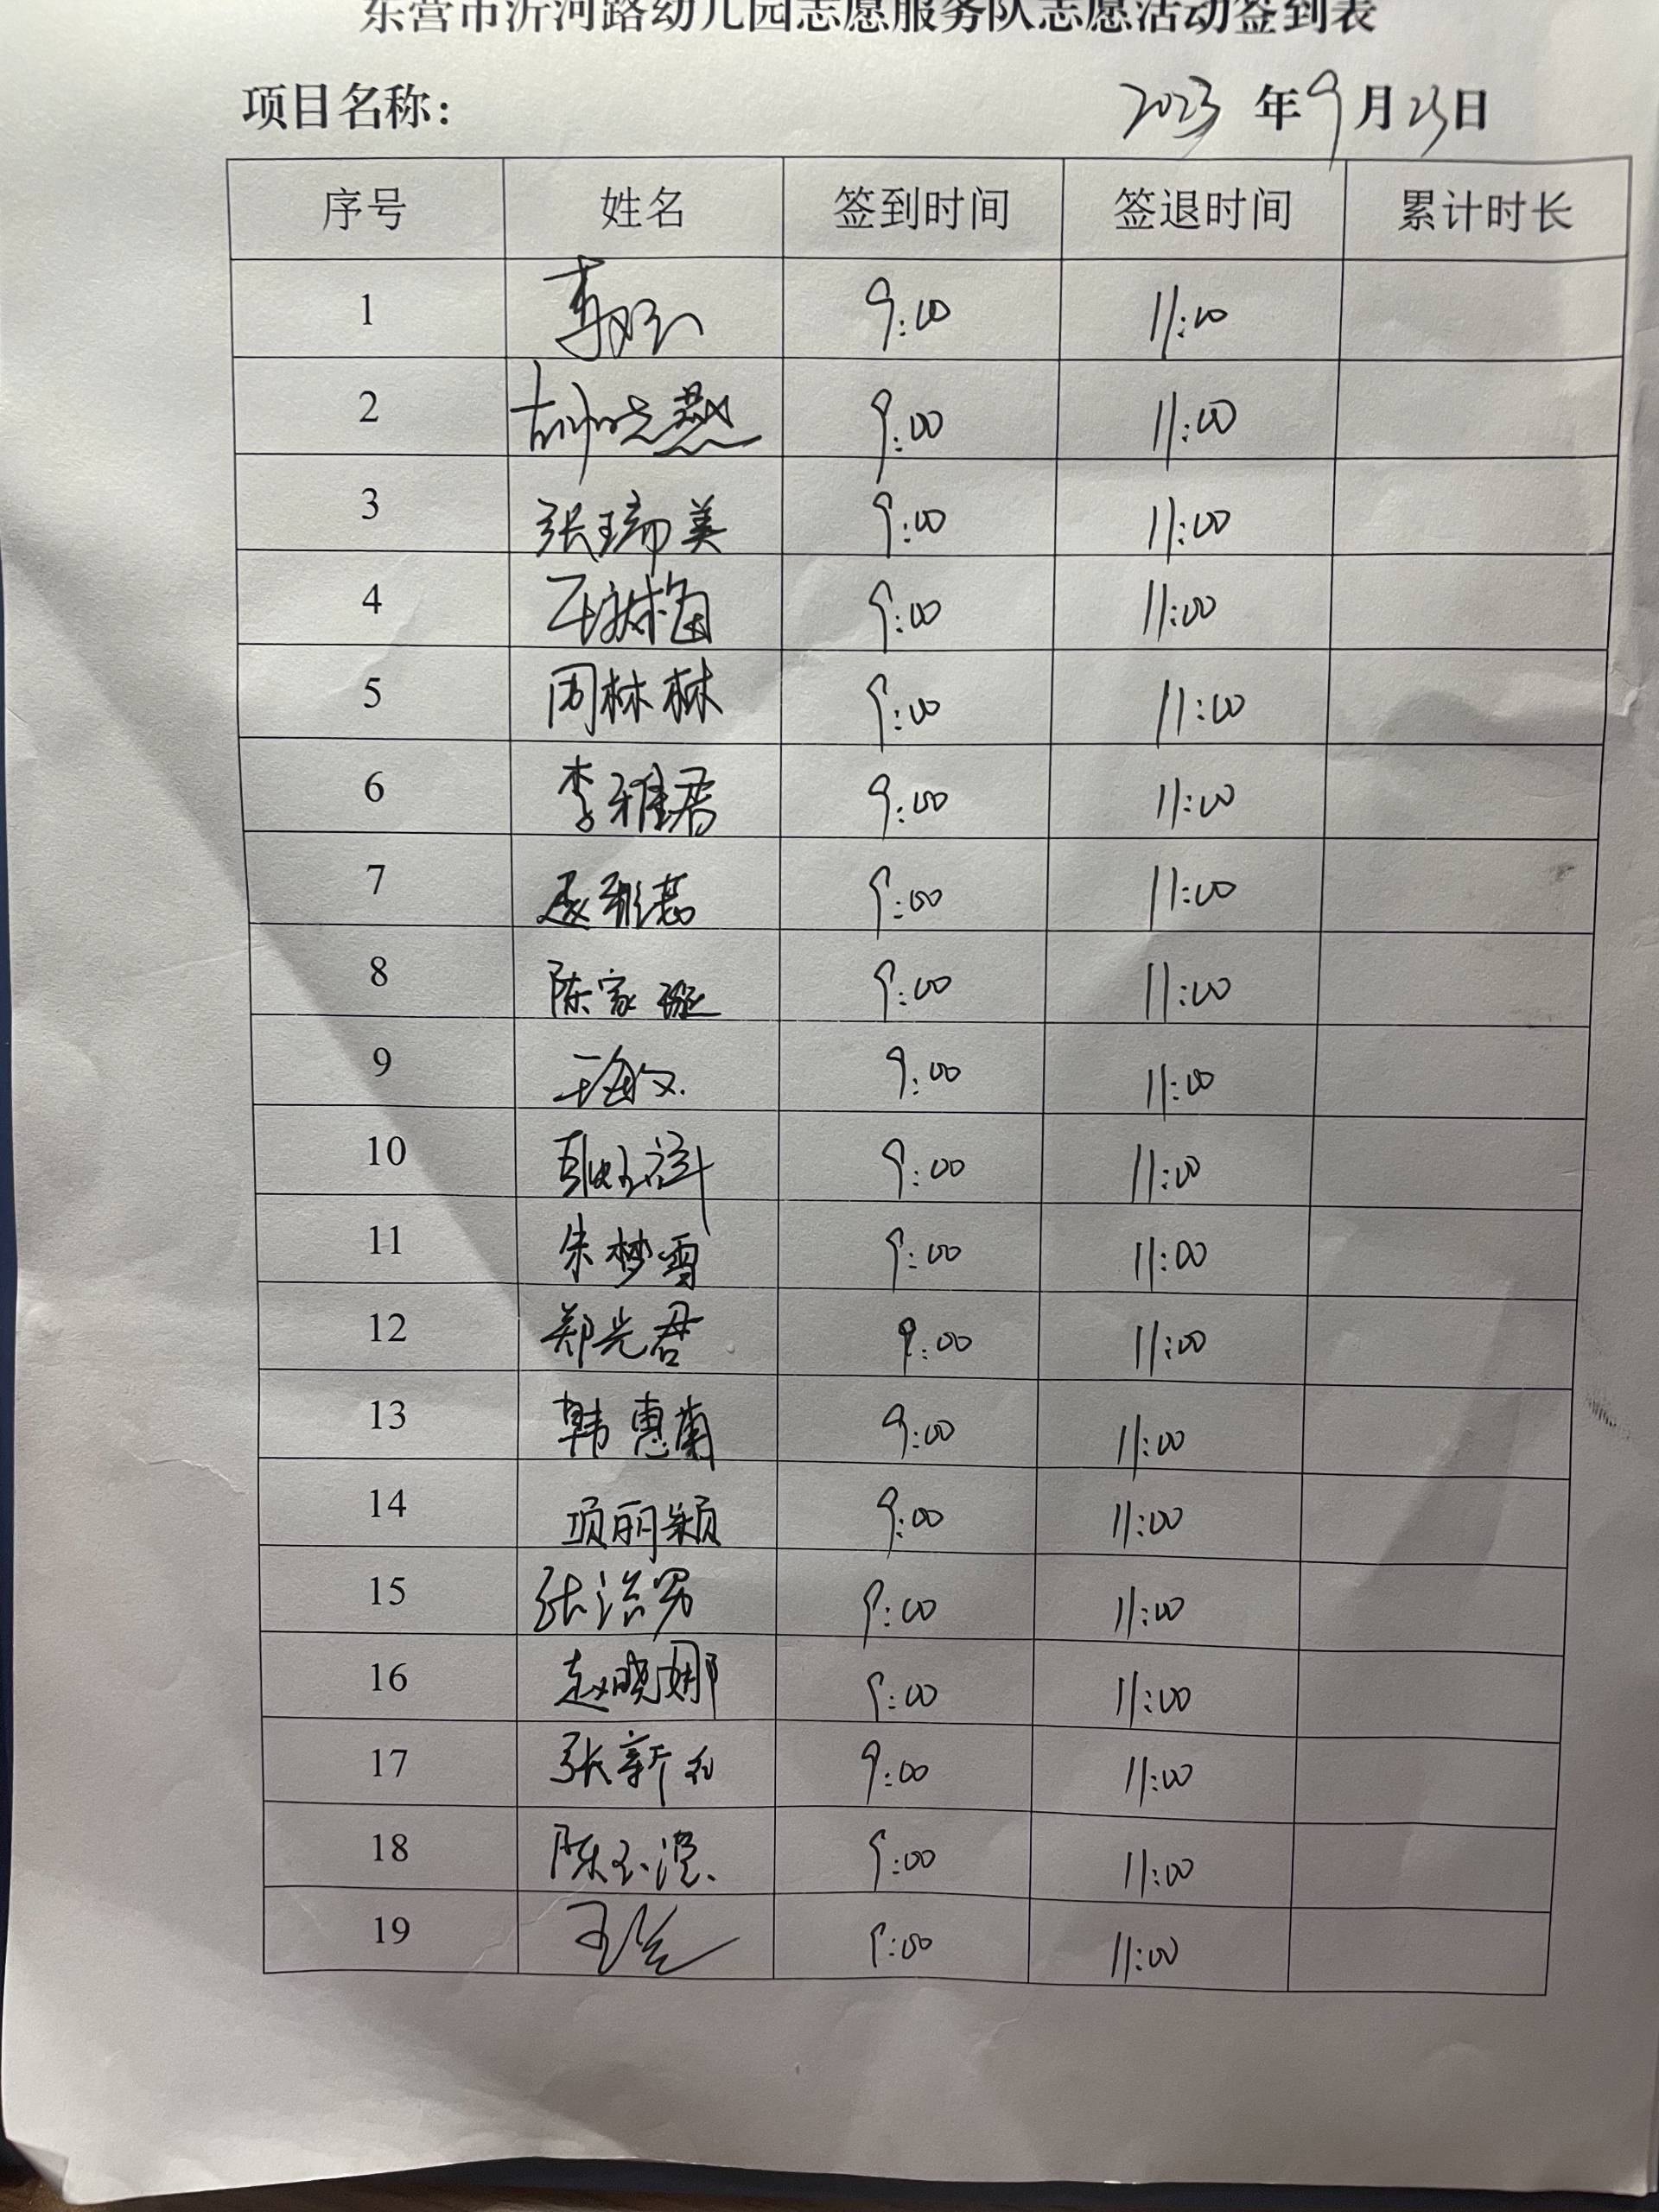 东营市沂河路幼儿园志愿服务队志愿活动签到表
项目名称: 2023 年 9 月 23 日
序号 姓名 签到时间 签退时间 累计时长
1 9:00 11:00
2 胡晓燕 9:00 11:00
3 张瑞美 9:00 11:00
4 9:00 11:00
5 周林林 9:00 11:00
6 李雅君 9:00 11:00
7 9:00 11:00
8 陈家 9:00 11:00
9 王海文 9:00 11:00
10 9:00 11:00
11 朱梦雪 9:00 11:00
12 郑光君 9:00 11:00
13 韩惠菊 9:00 11:00
14 项丽颖 9:00 11:00
15 9:00 11:00
16 赵晓娜 9:00 11:00
17 张新 9:00 11:00
18 陈玉 9:00 11:00
19 9:00 11:00